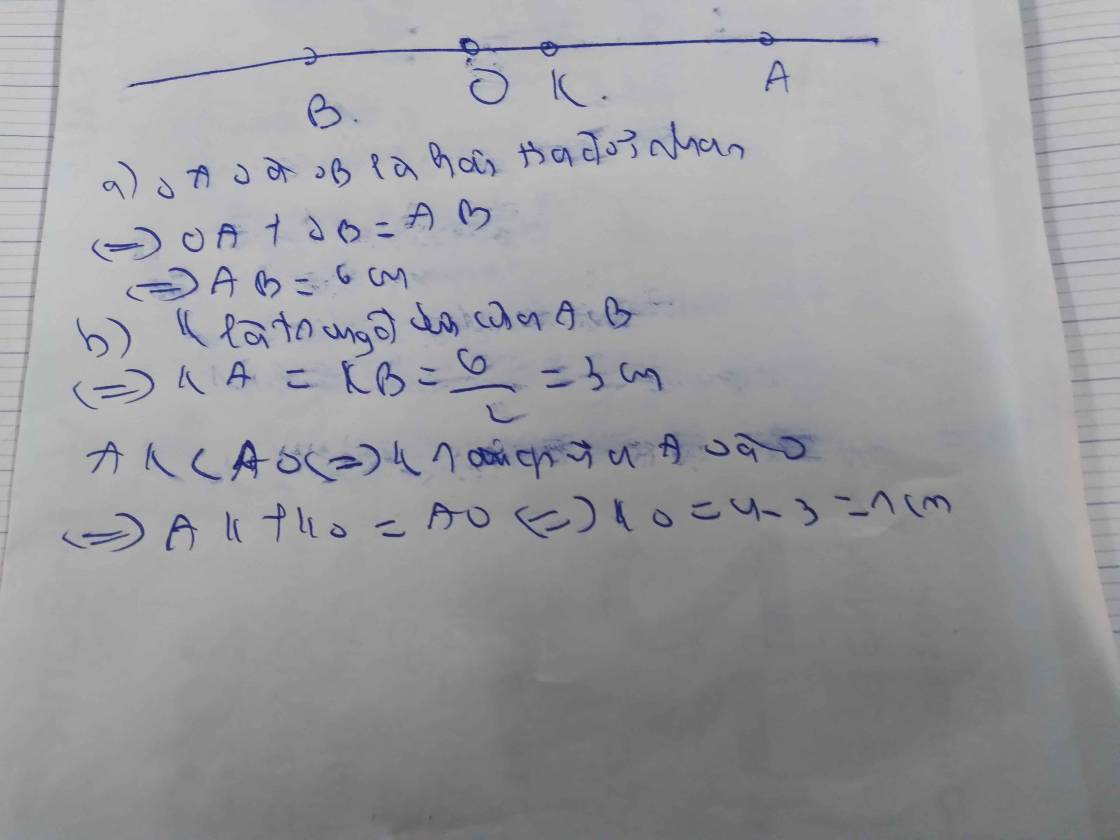 B. O K. A
a) OA và OB là hai tia đối nhau
<=> OA + OB = AB
<=> AB = 6 cm
b) K là trung điểm của AB
<=> KA = KB = 6/2 = 3 cm
AK < AO <=> K nằm giữa A và O
<=> AK + KO = AO <=> KO = 4 - 3 = 1 cm